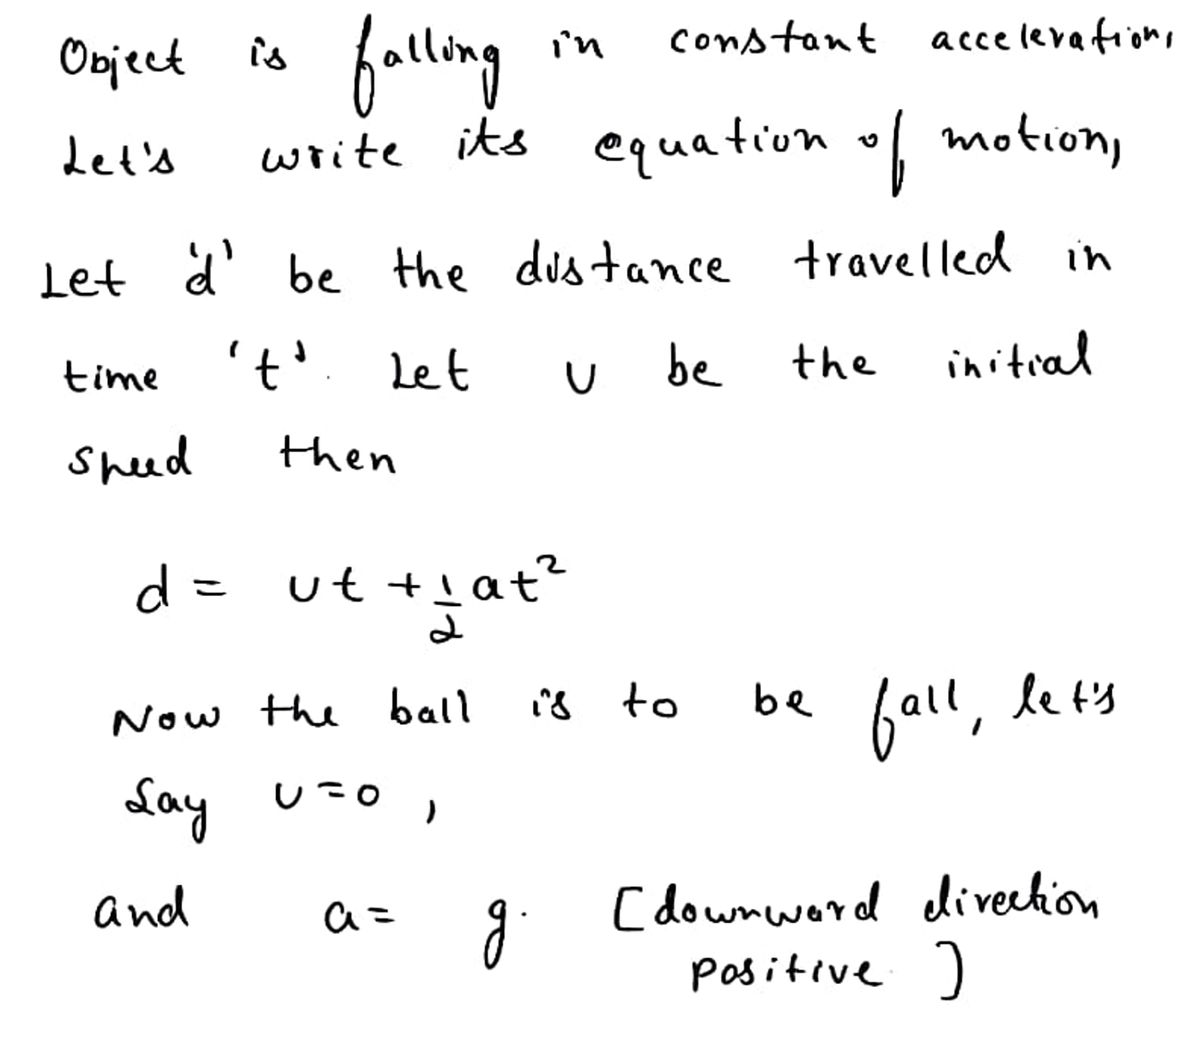 Object is falling in constant acceleration,
Let's write its equation of motion,
Let 'd' be the distance travelled in
time 't'. Let u be the initial
speed then
d = ut + 1/2 at²
Now the ball is to be fall, let's
say u=0,
and a= g. [downward direction
positive]